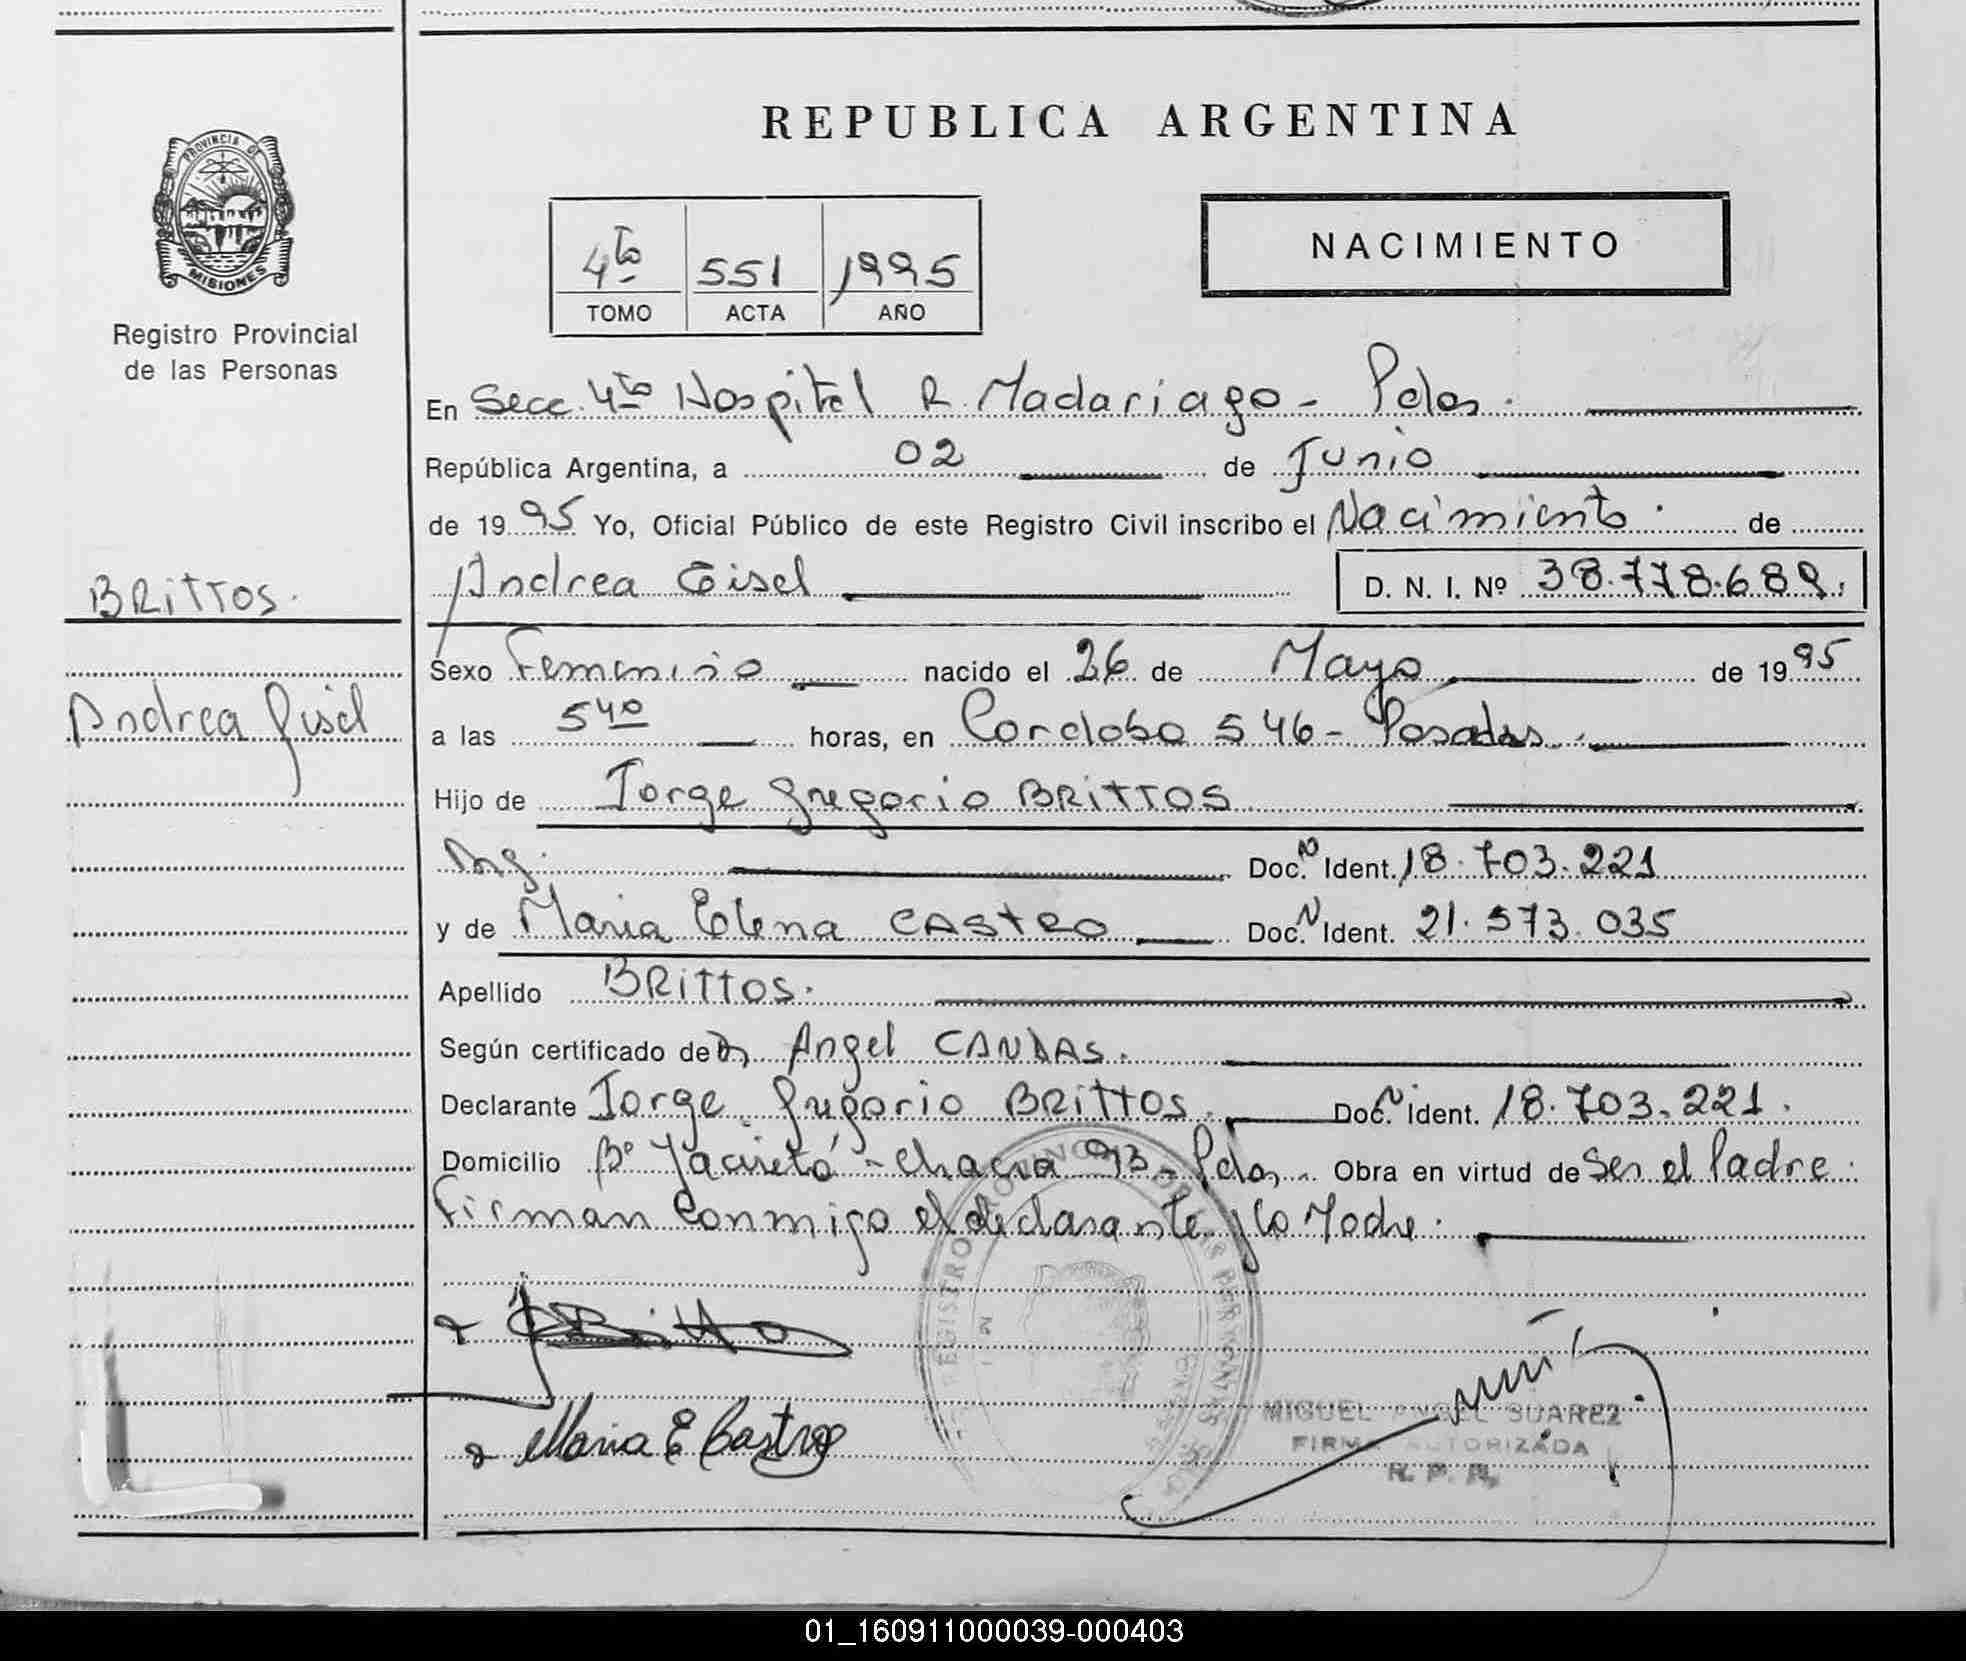 PROVINCIA DE
MISIONES
Registro Provincial
de las Personas
BRITTOS.
Andrea Gisel
REPUBLICA ARGENTINA
4to 551 1995
TOMO ACTA AÑO
NACIMIENTO
En Secc. 4to Hospital R. Madariaga - Pdas.
República Argentina, a 02 de Junio
de 1995 Yo, Oficial Público de este Registro Civil inscribo el Nacimiento. de
Andrea Gisel D. N. I. Nº 38.778.689.
Sexo Femenino nacido el 26 de Mayo de 1995
a las 5 40 horas, en Cordoba 546 - Posadas.
Hijo de Jorge Gregorio BRITTOS
Arg. Doc. N Ident. 18.703.221
y de Maria Elena CASTRO Doc. N Ident. 21.573.035
Apellido BRITTOS.
Según certificado de Dr. Angel CANDAS.
Declarante Jorge Gregorio BRITTOS. Doc. N Ident. 18.703.221.
Domicilio Bº Yacireta - Chacra 93 - Pdas. Obra en virtud de Ser el Padre.
Firman Conmigo el declarante y la Madre.
Britto
Maria E Castro
REGISTRO PROVINCIAL DE LAS PERSONAS
MIGUEL ANGEL SUAREZ
FIRMA AUTORIZADA
R. P. P.
01_160911000039-000403